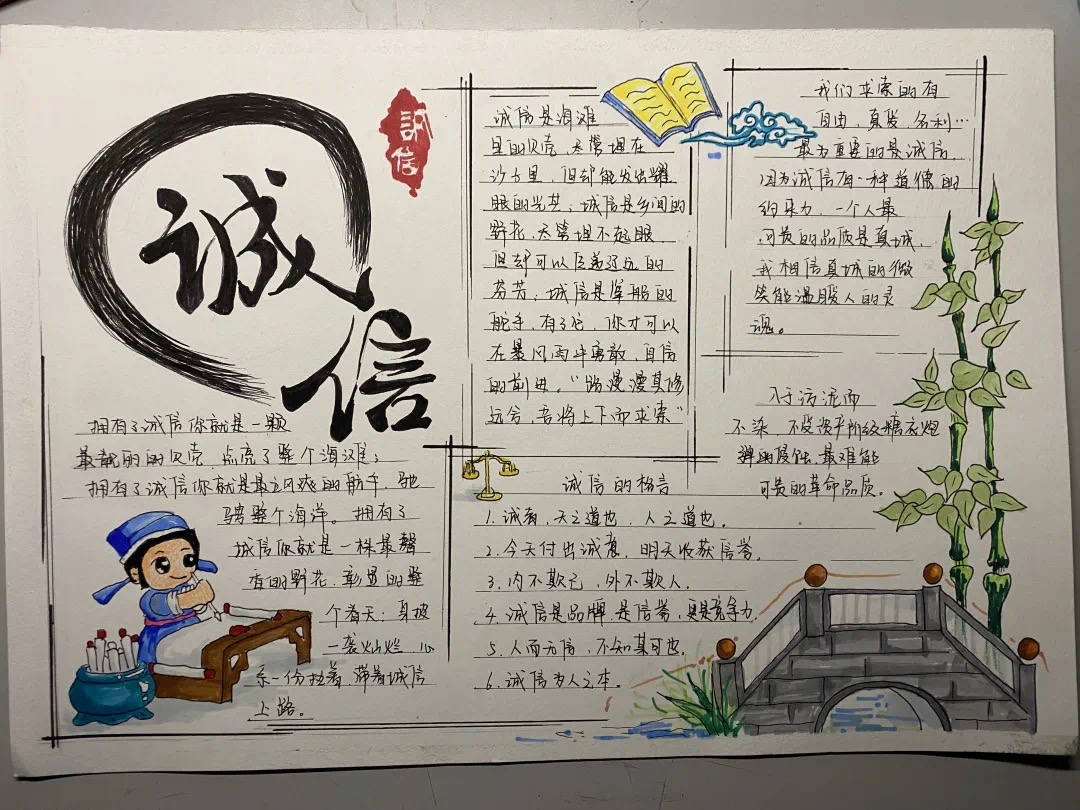 诚信
誠信
拥有了诚信你就是一颗
最靓丽的贝壳,点亮了整个海滩;
拥有了诚信你就是最立风疾的舵手,驰
骋整个海洋。拥有了
诚信你就是一株最馨
香的野花,彰显的整
个春天;身披
一袭灿烂,心
系一份执着,带着诚信
上路。
诚信是海滩
里的贝壳,尽管埋在
沙土里,但却能发出耀
眼的光芒;诚信是乡间的
野花,尽管坦不起眼,
但却可以传递辽远的
芬芳;诚信是军舰的
舵手,有了它,你才可以
在暴风雨中勇敢,自信
的前进。“路漫漫其修
远兮,吾将上下而求索”
我们求索的有
自由,真爱,名利…
最为重要的是诚信,
因为诚信有一种道德的
约束力,一个人最
可贵的品质是真诚,
我相信真诚的微
笑能温暖人的灵
魂。
入于污泥而
不染,不受资产阶级糖衣炮
弹的侵蚀,最难能
可贵的革命品质。
诚信的格言
1.诚者,天之道也,人之道也。
2.今天付出诚意,明天收获信誉。
3.内不欺己,外不欺人。
4.诚信是品牌,是信誉,更是竞争力.
5.人而无信,不知其可也。
6.诚信为人之本。